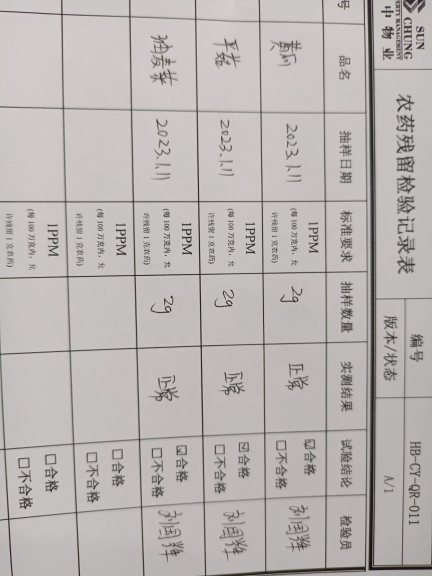 SUN
CHUNG
PERTY MANAGEMENT
中物业
农药残留检验记录表
编号
HB-CY-QR-011
版本/状态
A/1
号
品名
抽样日期
标准要求
抽样数量
实测结果
试验结论
检验员
黄瓜
2023.1.11
1PPM
(每 100 万克内，允
许残留 1 克农药)
2g
正常
☑合格
□不合格
刘国辉
平菇
2023.1.11
1PPM
(每 100 万克内，允
许残留 1 克农药)
2g
正常
☑合格
□不合格
刘国辉
油麦菜
2023.1.11
1PPM
(每 100 万克内，允
许残留 1 克农药)
2g
正常
☑合格
□不合格
刘国辉
1PPM
(每 100 万克内，允
许残留 1 克农药)
□合格
□不合格
1PPM
(每 100 万克内，允
许残留 1 克农药)
□合格
□不合格